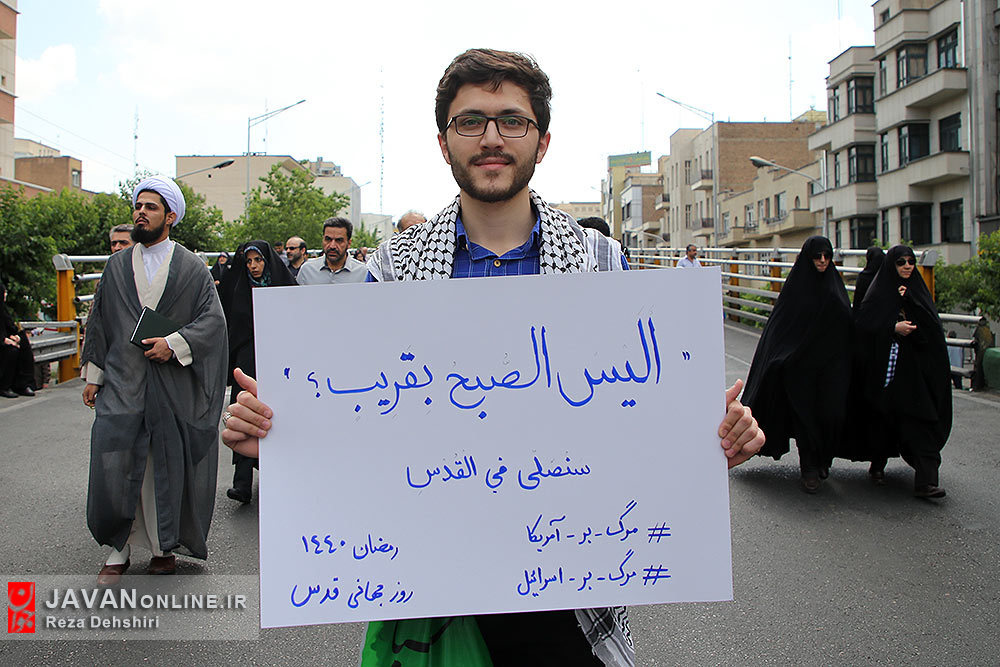 " اَلَیسَ الصّبحُ بِقَریبٍ ؟ "
سَنُصَلّی فِي القُدس
# مرگ - بر - آمریکا
# مرگ - بر - اسرائیل
رمضان ١٤٤٠
روز جهانی قدس
JAVANONLINE.IR
Reza Dehshiri